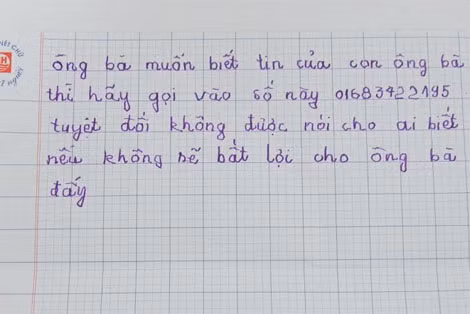 ông bà muốn biết tin của con ông bà
thì hãy gọi vào số này 01683922195
tuyệt đối không được nói cho ai biết
nếu không sẽ bất lợi cho ông bà
đấy